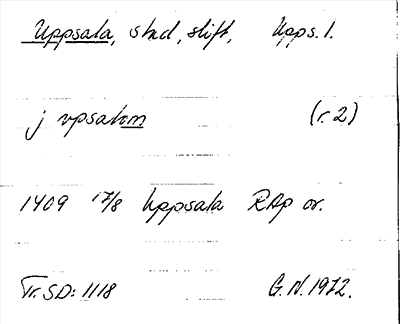 Uppsala, stad, stift, Upps. l.
j vpsalum (r. 2)
1409 17/8 Uppsala RAp or.
Tr. SD: 1118 G.N. 1972.